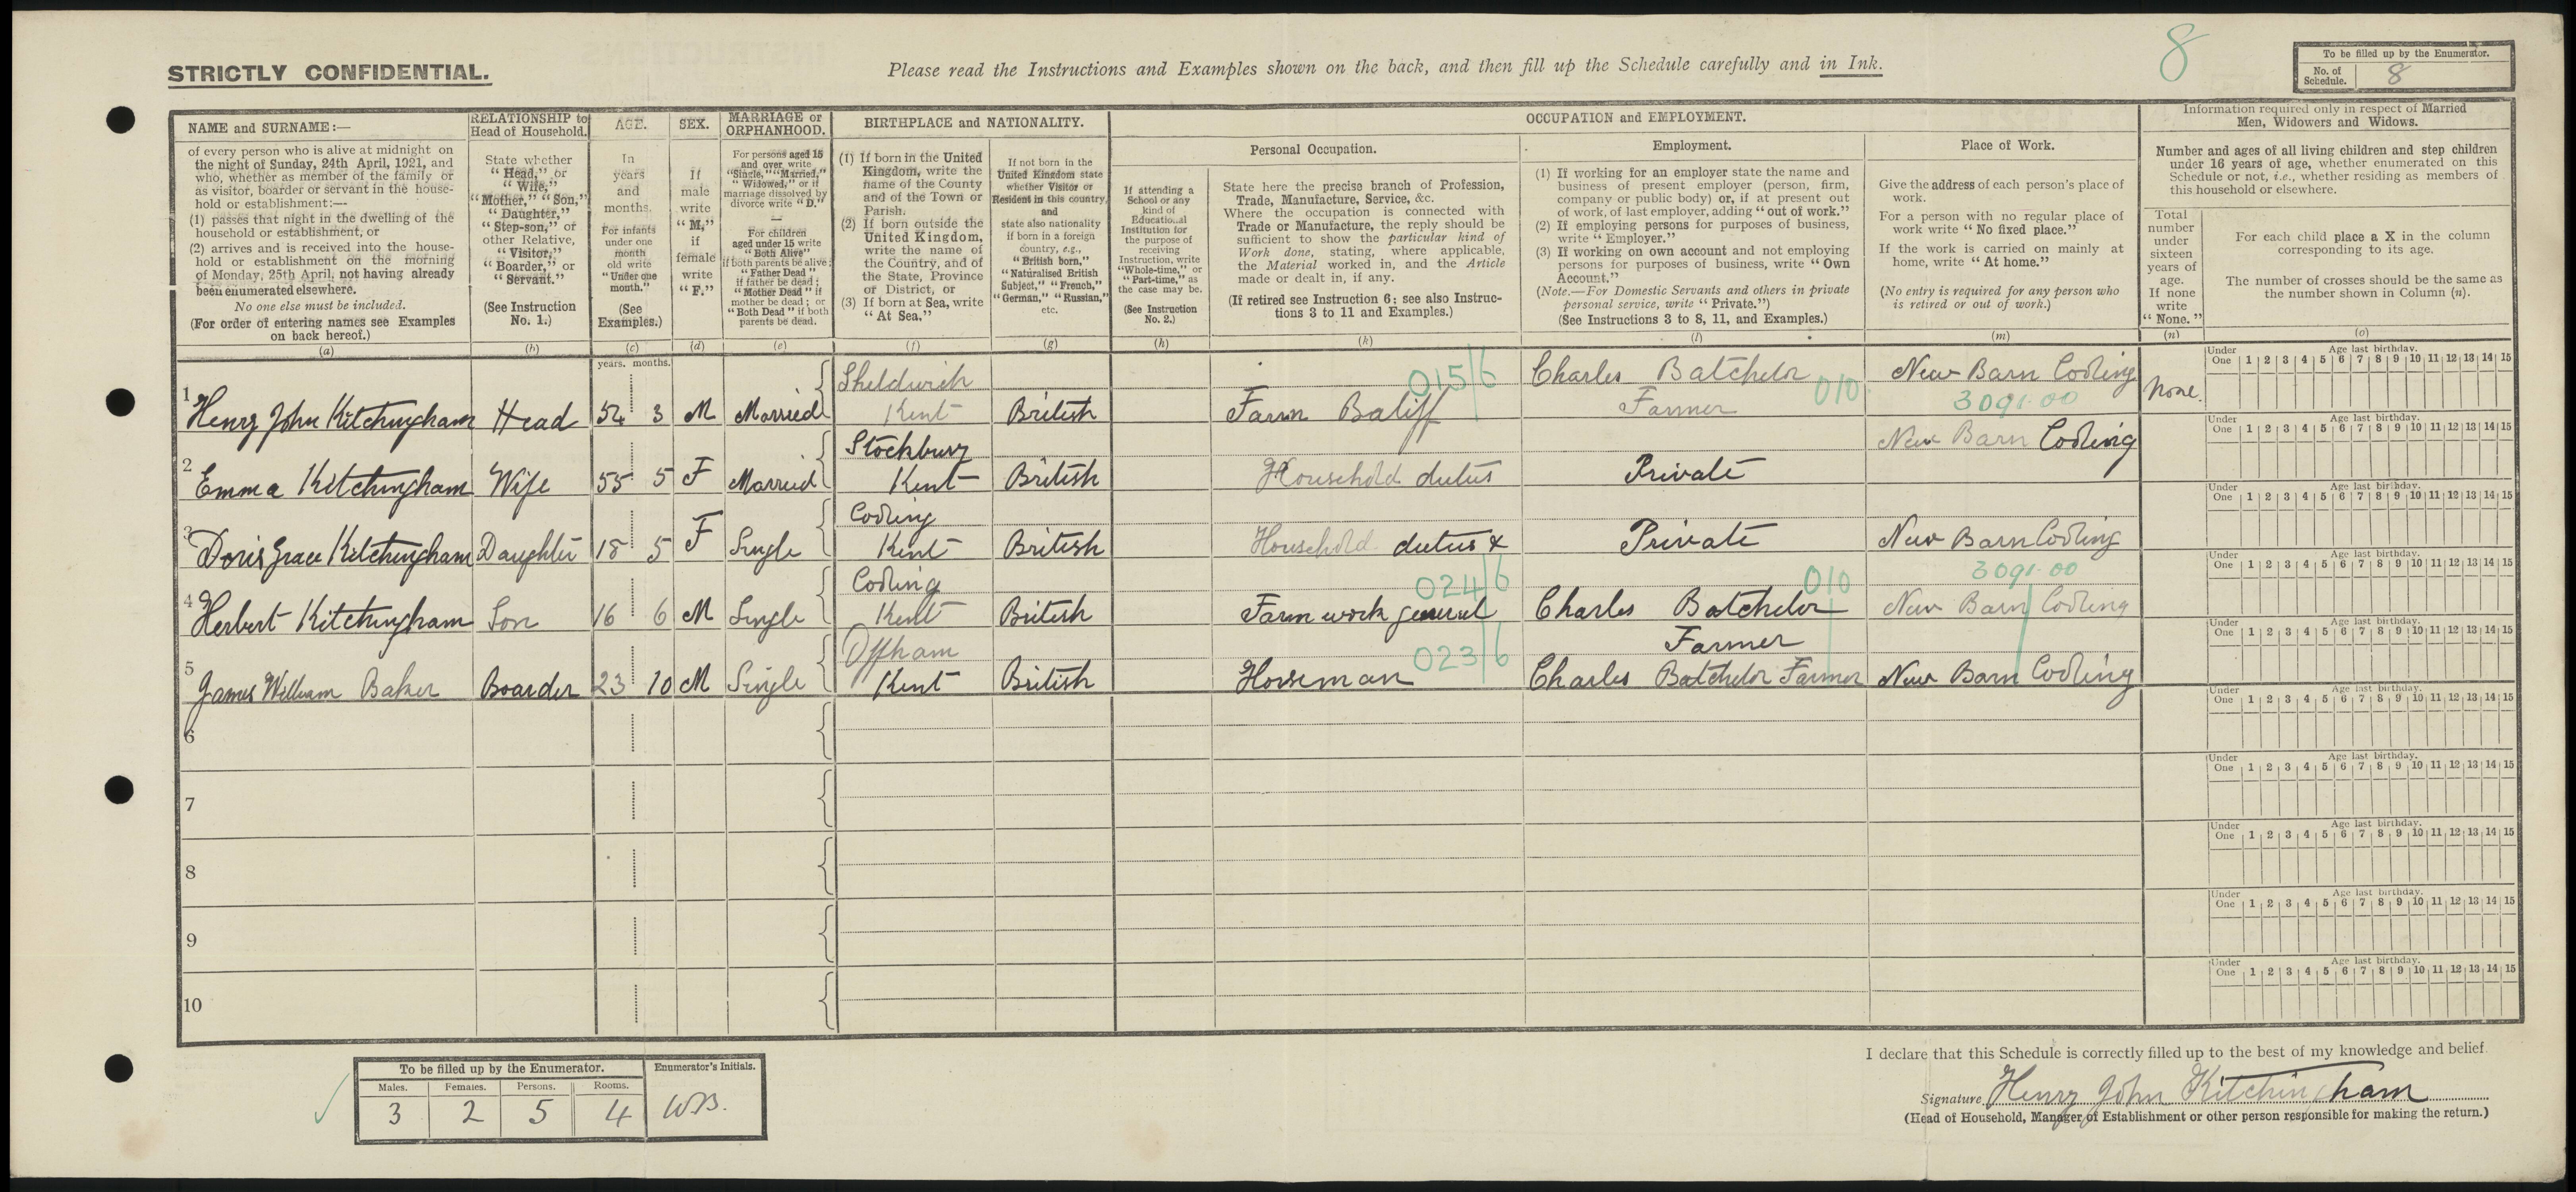 STRICTLY CONFIDENTIAL.
Please read the Instructions and Examples shown on the back, and then fill up the Schedule carefully and in Ink.
8
To be filled up by the Enumerator.
No. of Schedule. 8
NAME and SURNAME:—
of every person who is alive at midnight on
the night of Sunday, 24th April, 1921, and
who, whether as member of the family or
as visitor, boarder or servant in the house-
hold or establishment:—
(1) passes that night in the dwelling of the
household or establishment, or
(2) arrives and is received into the house-
hold or establishment on the morning
of Monday, 25th April, not having already
been enumerated elsewhere.
No one else must be included.
(For order of entering names see Examples
on back hereof.)
(a)
RELATIONSHIP to
Head of Household.
State whether
"Head," or
"Wife,"
"Mother," "Son,"
"Daughter,"
"Step-son," or
other Relative,
"Visitor,"
"Boarder," or
"Servant."
(See Instruction
No. 1.)
(b)
AGE.
In
years
and
months.
For infants
under one
month
old write
"Under one
month."
(See
Examples.)
(c)
SEX.
If
male
write
"M,"
if
female
write
"F."
(d)
MARRIAGE or
ORPHANHOOD.
For persons aged 15
and over write
"Single," "Married,"
"Widowed," or if
marriage dissolved by
divorce write "D."
—
For children
aged under 15 write
"Both Alive"
if both parents be alive;
"Father Dead"
if father be dead;
"Mother Dead" if
mother be dead; or
"Both Dead" if both
parents be dead.
(e)
BIRTHPLACE and NATIONALITY.
(1) If born in the United
Kingdom, write the
name of the County
and of the Town or
Parish.
(2) If born outside the
United Kingdom,
write the name of
the Country, and of
the State, Province
or District, or
(3) If born at Sea, write
"At Sea."
(f)
If not born in the
United Kingdom state
whether Visitor or
Resident in this country,
and
state also nationality
if born in a foreign
country, e.g.,
"British born,"
"Naturalised British
Subject," "French,"
"German," "Russian,"
etc.
(g)
OCCUPATION and EMPLOYMENT.
If attending a
School or any
kind of
Educational
Institution for
the purpose of
receiving
Instruction, write
"Whole-time," or
"Part-time," as
the case may be.
(See Instruction
No. 2.)
(h)
Personal Occupation.
State here the precise branch of Profession,
Trade, Manufacture, Service, &c.
Where the occupation is connected with
Trade or Manufacture, the reply should be
sufficient to show the particular kind of
Work done, stating, where applicable,
the Material worked in, and the Article
made or dealt in, if any.
(If retired see Instruction 6: see also Instruc-
tions 3 to 11 and Examples.)
(k)
Employment.
(1) If working for an employer state the name and
business of present employer (person, firm,
company or public body) or, if at present out
of work, of last employer, adding "out of work."
(2) If employing persons for purposes of business,
write "Employer."
(3) If working on own account and not employing
persons for purposes of business, write "Own
Account."
(Note.—For Domestic Servants and others in private
personal service, write "Private.")
(See Instructions 3 to 8, 11, and Examples.)
(l)
Place of Work.
Give the address of each person's place of
work.
For a person with no regular place of
work write "No fixed place."
If the work is carried on mainly at
home, write "At home."
(No entry is required for any person who
is retired or out of work.)
(m)
Information required only in respect of Married
Men, Widowers and Widows.
Number and ages of all living children and step children
under 16 years of age, whether enumerated on this
Schedule or not, i.e., whether residing as members of
this household or elsewhere.
Total
number
under
sixteen
years of
age.
If none
write
"None."
(n)
For each child place a X in the column
corresponding to its age.
The number of crosses should be the same as
the number shown in Column (n).
(o)
years. months.
Under One Age last birthday. 1 2 3 4 5 6 7 8 9 10 11 12 13 14 15
Sheldwich 015/6 Charles Batchelor New Barn Cooling
1 Henry John Kitchingham Head 54 3 M Married Kent British Farm Baliff Farmer 010 3091.00 None.
Under One Age last birthday. 1 2 3 4 5 6 7 8 9 10 11 12 13 14 15
Stockbury New Barn Cooling
2 Emma Kitchingham Wife 55 5 F Married Kent British Household duties Private
Under One Age last birthday. 1 2 3 4 5 6 7 8 9 10 11 12 13 14 15
Cooling
3 Doris Grace Kitchingham Daughter 18 5 F Single Kent British Household duties x Private New Barn Cooling
Under One Age last birthday. 1 2 3 4 5 6 7 8 9 10 11 12 13 14 15
Cooling 024/6 010 3091.00
4 Herbert Kitchingham Son 16 6 M Single Kent British Farm work general Charles Batchelor New Barn Cooling
Under One Age last birthday. 1 2 3 4 5 6 7 8 9 10 11 12 13 14 15
Offham 023/6 Farmer
5 James William Baker Boarder 23 10 M Single Kent British Horseman Charles Batchelor Farmer New Barn Cooling
Under One Age last birthday. 1 2 3 4 5 6 7 8 9 10 11 12 13 14 15
6
Under One Age last birthday. 1 2 3 4 5 6 7 8 9 10 11 12 13 14 15
7
Under One Age last birthday. 1 2 3 4 5 6 7 8 9 10 11 12 13 14 15
8
Under One Age last birthday. 1 2 3 4 5 6 7 8 9 10 11 12 13 14 15
9
Under One Age last birthday. 1 2 3 4 5 6 7 8 9 10 11 12 13 14 15
10
To be filled up by the Enumerator.
Males. Females. Persons. Rooms.
3 2 5 4
Enumerator's Initials.
WB.
I declare that this Schedule is correctly filled up to the best of my knowledge and belief.
Signature Henry John Kitchingham
(Head of Household, Manager of Establishment or other person responsible for making the return.)